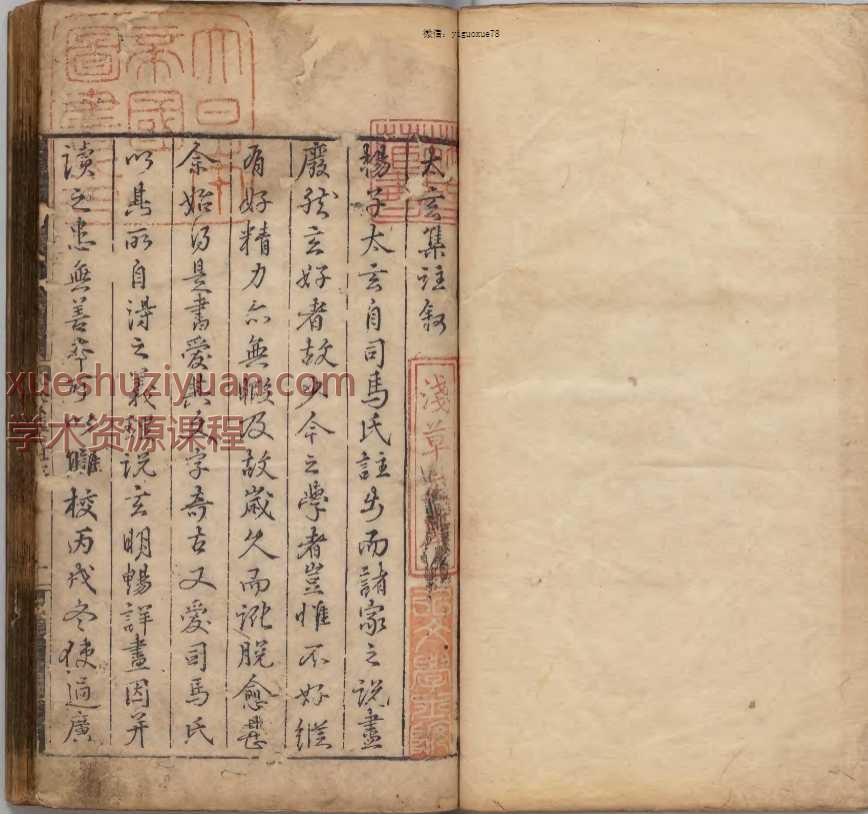 微信：yiguoxue78
太玄集註叙
楊子太玄自司馬氏註出而諸家之說盡
廢然玄好者故少今之學者豈惟不好縱
有好精力亦無暇及故歲久而訛脫愈甚
余始得是書愛其文字奇古又愛司馬氏
以其所自得之義揚說玄明暢詳盡因并
讀之患無善本可以讎校丙戌冬使過廣
大日本帝國圖書
淺草
xueshuziyuan.com
学术资源课程